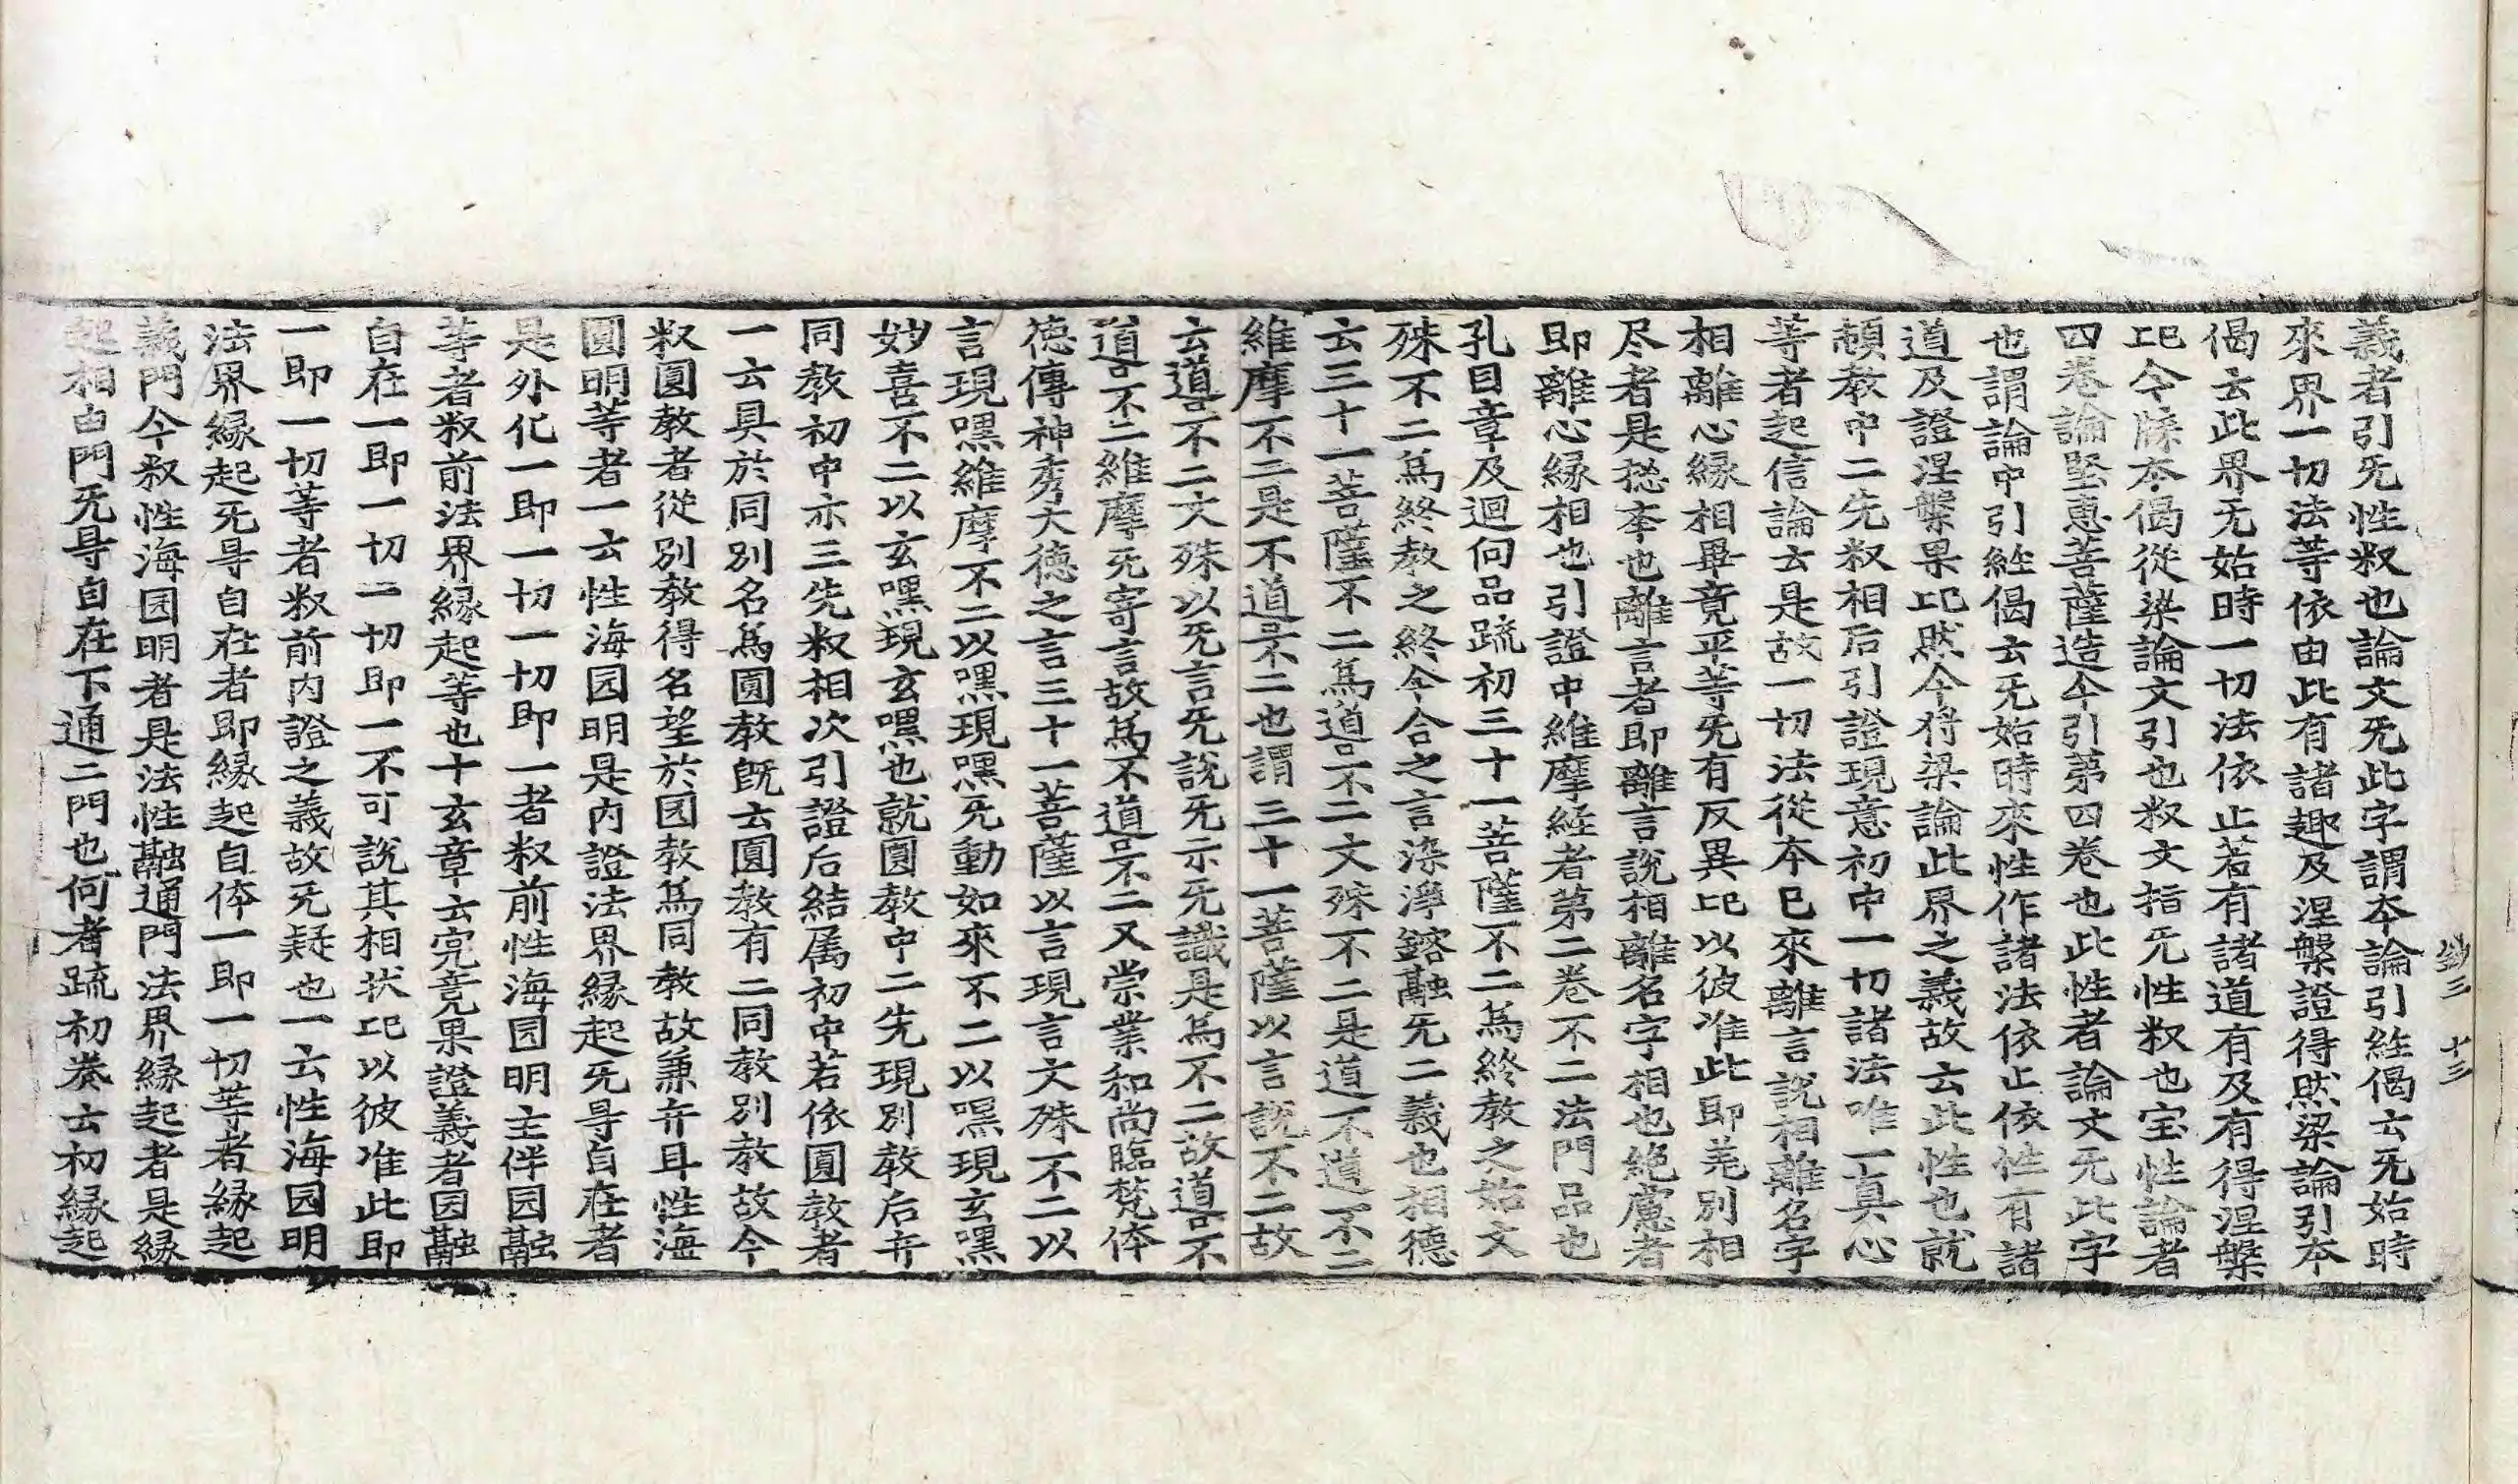 義者引旡性㕘也論文旡此字謂夲論引経偈云旡始時
來界一切法等依由此有諸趣及涅槃證得然梁論引本
偈云此界无始時一切法依止若有諸道有及有得涅槃
巳今牒夲偈從梁論文引也㕘文指旡性㕘也宝性論者
四卷論堅恵菩薩造今引第四卷也此性者論文旡此字
也謂論中引経偈云旡始時來性作諸法依止依性有諸
道及證涅槃果巳然今将梁論此界之義故云此性也就
頓教中二先㕘相后引證現意初中一切諸法唯一真心
等者起信論云是故一切法從夲已來離言說相離名字
相離心縁相畢竟平等旡有反異巳以彼准此即羌別相
尽者是捴夲也離言者即離言說相離名字相也絶慮者
即離心縁相也引證中維摩経者第二卷不二法門品也
孔目章及迴向品䟽初三十一菩薩不二為終教之始文
殊不二為終教之終今合之言染淨鎔融旡二義也相德
云三十一菩薩不二為道不二文殊不二是道不道不二
維摩不二是不道不二也謂三十一菩薩以言說不二故
云道不二文殊以旡言旡說旡示旡識是為不二故道不
道不二維摩旡寄言故為不道不二又崇業和尚臨梵体
德傳神秀大德之言三十一菩薩以言現言文殊不二以
言現嘿維摩不二以嘿現嘿旡動如來不二以嘿現玄嘿
妙喜不二以玄嘿現玄嘿也就圓教中二先現別教后弁
同教初中亦三先㕘相次引證后結属初中若依圓教者
一云具於同別名為圓教旣云圓教有二同教別教故今
㕘圓教者從別教得名望於囩教為同教故兼弁耳性海
圓明等者一云性海囩明是内證法界縁起旡㝵自在者
是外化一即一切一切即一者㕘前性海囩明主伴囩融
等者㕘前法界縁起等也十玄章云究竟果證義者囩融
自在一即一切一切即一不可説其相状巳以彼准此即
一即一切等者㕘前内證之義故旡疑也一云性海囩明
法界縁起旡㝵自在者即縁起自体一即一切等者縁起
義門今㕘性海囩明者是法性融通門法界縁起者是縁
起相由門旡㝵自在下通二門也何者䟽初卷云初縁起
鈔三 十三